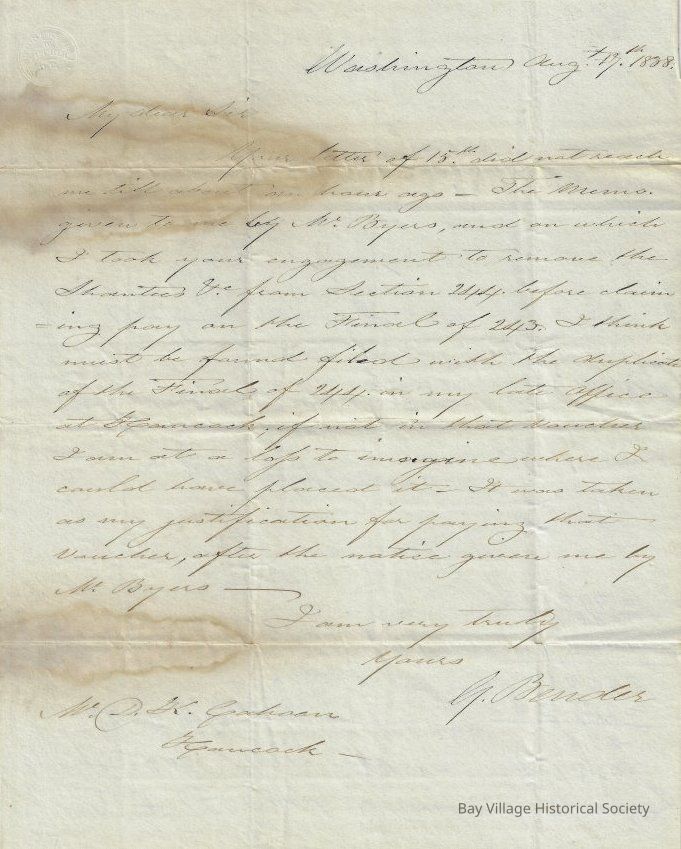 Washington Augt. 17th. 1838.
My dear Sir
Your letter of 15th. did not reach
me till about an hour ago – The Memo.
given to me by Mr. Byers, and on which
I took your engagement to remove the
Shanties &c from Section 244. before claim
=ing pay on the Final of 243. I think
must be found filed with the duplicate
of the Final of 244. in my late office
at Hancock, if not in that voucher
I am at a loss to imagine where I
could have placed it – It was taken
as my justification for paying that
voucher, after the notice given me by
Mr. Byers —
I am very truly
Yours
G. Bender
Mr. D. K. Cahoon
Hancock –
Bay Village Historical Society